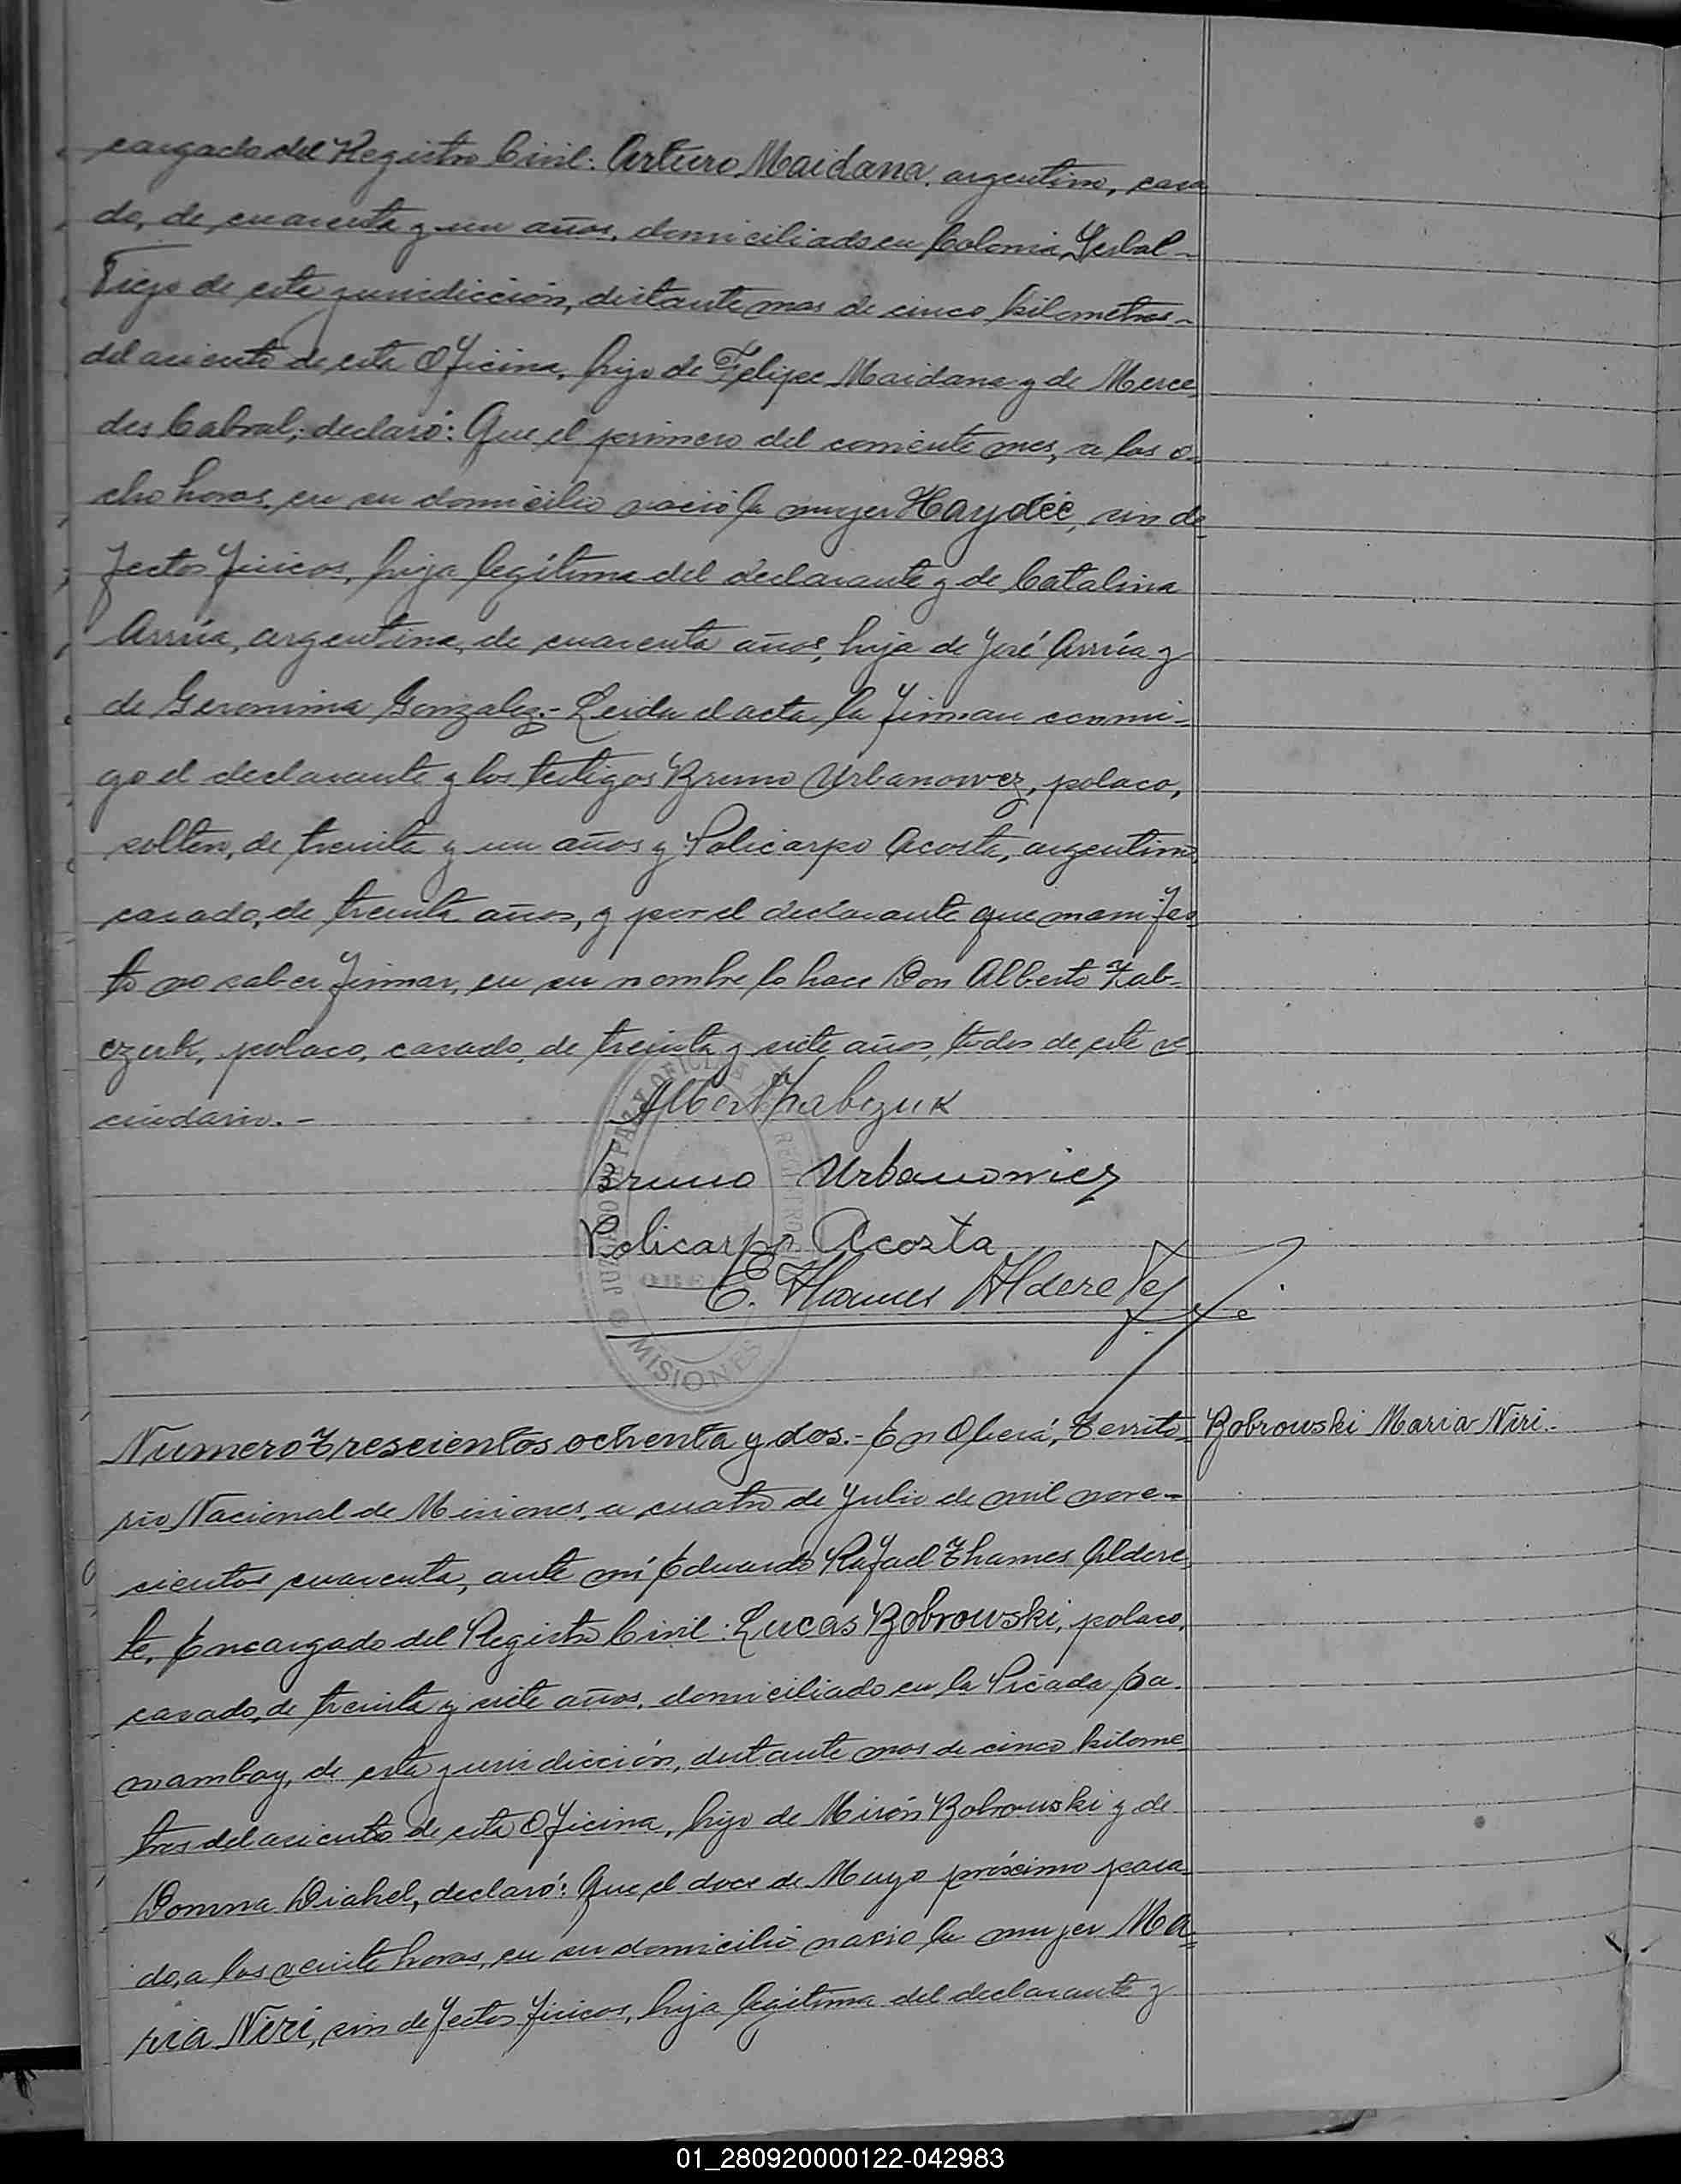 cargado del Registro Civil: Arturo Maidana, argentino, casa
do, de cuarenta y un años, domiciliado en Colonia Yerbal-
Viejo de esta jurisdicción, distante mas de cinco kilometros-
del asiento de esta Oficina, hijo de Felipe Maidana y de Merce
des Cabral; declaró: Que el primero del corriente mes, a las o-
cho horas, en su domicilio nació la mujer Haydée, sin de-
fectos fisicos, hija legítima del declarante y de Catalina
Arrúa, argentina, de cuarenta años, hija de José Arrúa y
de Geronima Gonzalez.- Leida el acta, la firman conmi-
go el declarante y los testigos Bruno Urbanowez, polaco,
soltero, de treinta y un años y Policarpo Acosta, argentino,
casado, de treinta años, y por el declarante que manifes-
tó no saber firmar, en su nombre lo hace Don Alberto Hab-
czuk, polaco, casado, de treinta y siete años, todos de este ve
cindario.-
Bruno Urbanowicz
Policarpo Acosta
E. Thames Alderete
JUZGADO DE PAZ Y OFICINA REGISTRO
OBERA
MISIONES
Numero Trescientos ochenta y dos.- En Oberá, Territo-
Bobrowski Maria Niri.-
rio Nacional de Misiones, a cuatro de Julio de mil nove-
cientos cuarenta, ante mí Eduardo Rafael Thames Aldere
te, Encargado del Registro Civil: Lucas Bobrowski, polaco,
casado, de treinta y siete años, domiciliado en la Picada Pa
nambay, de esta jurisdicción, distante mas de cinco kilome
tros del asiento de esta Oficina, hijo de Mirón Bobrowski y de
Domna Diahel, declaró: Que el doce de Mayo próximo pasa-
do, a las veinte horas, en su domicilio nacio la mujer Ma-
ria Niri, sin defectos fisicos, hija legitima del declarante y
01_280920000122-042983